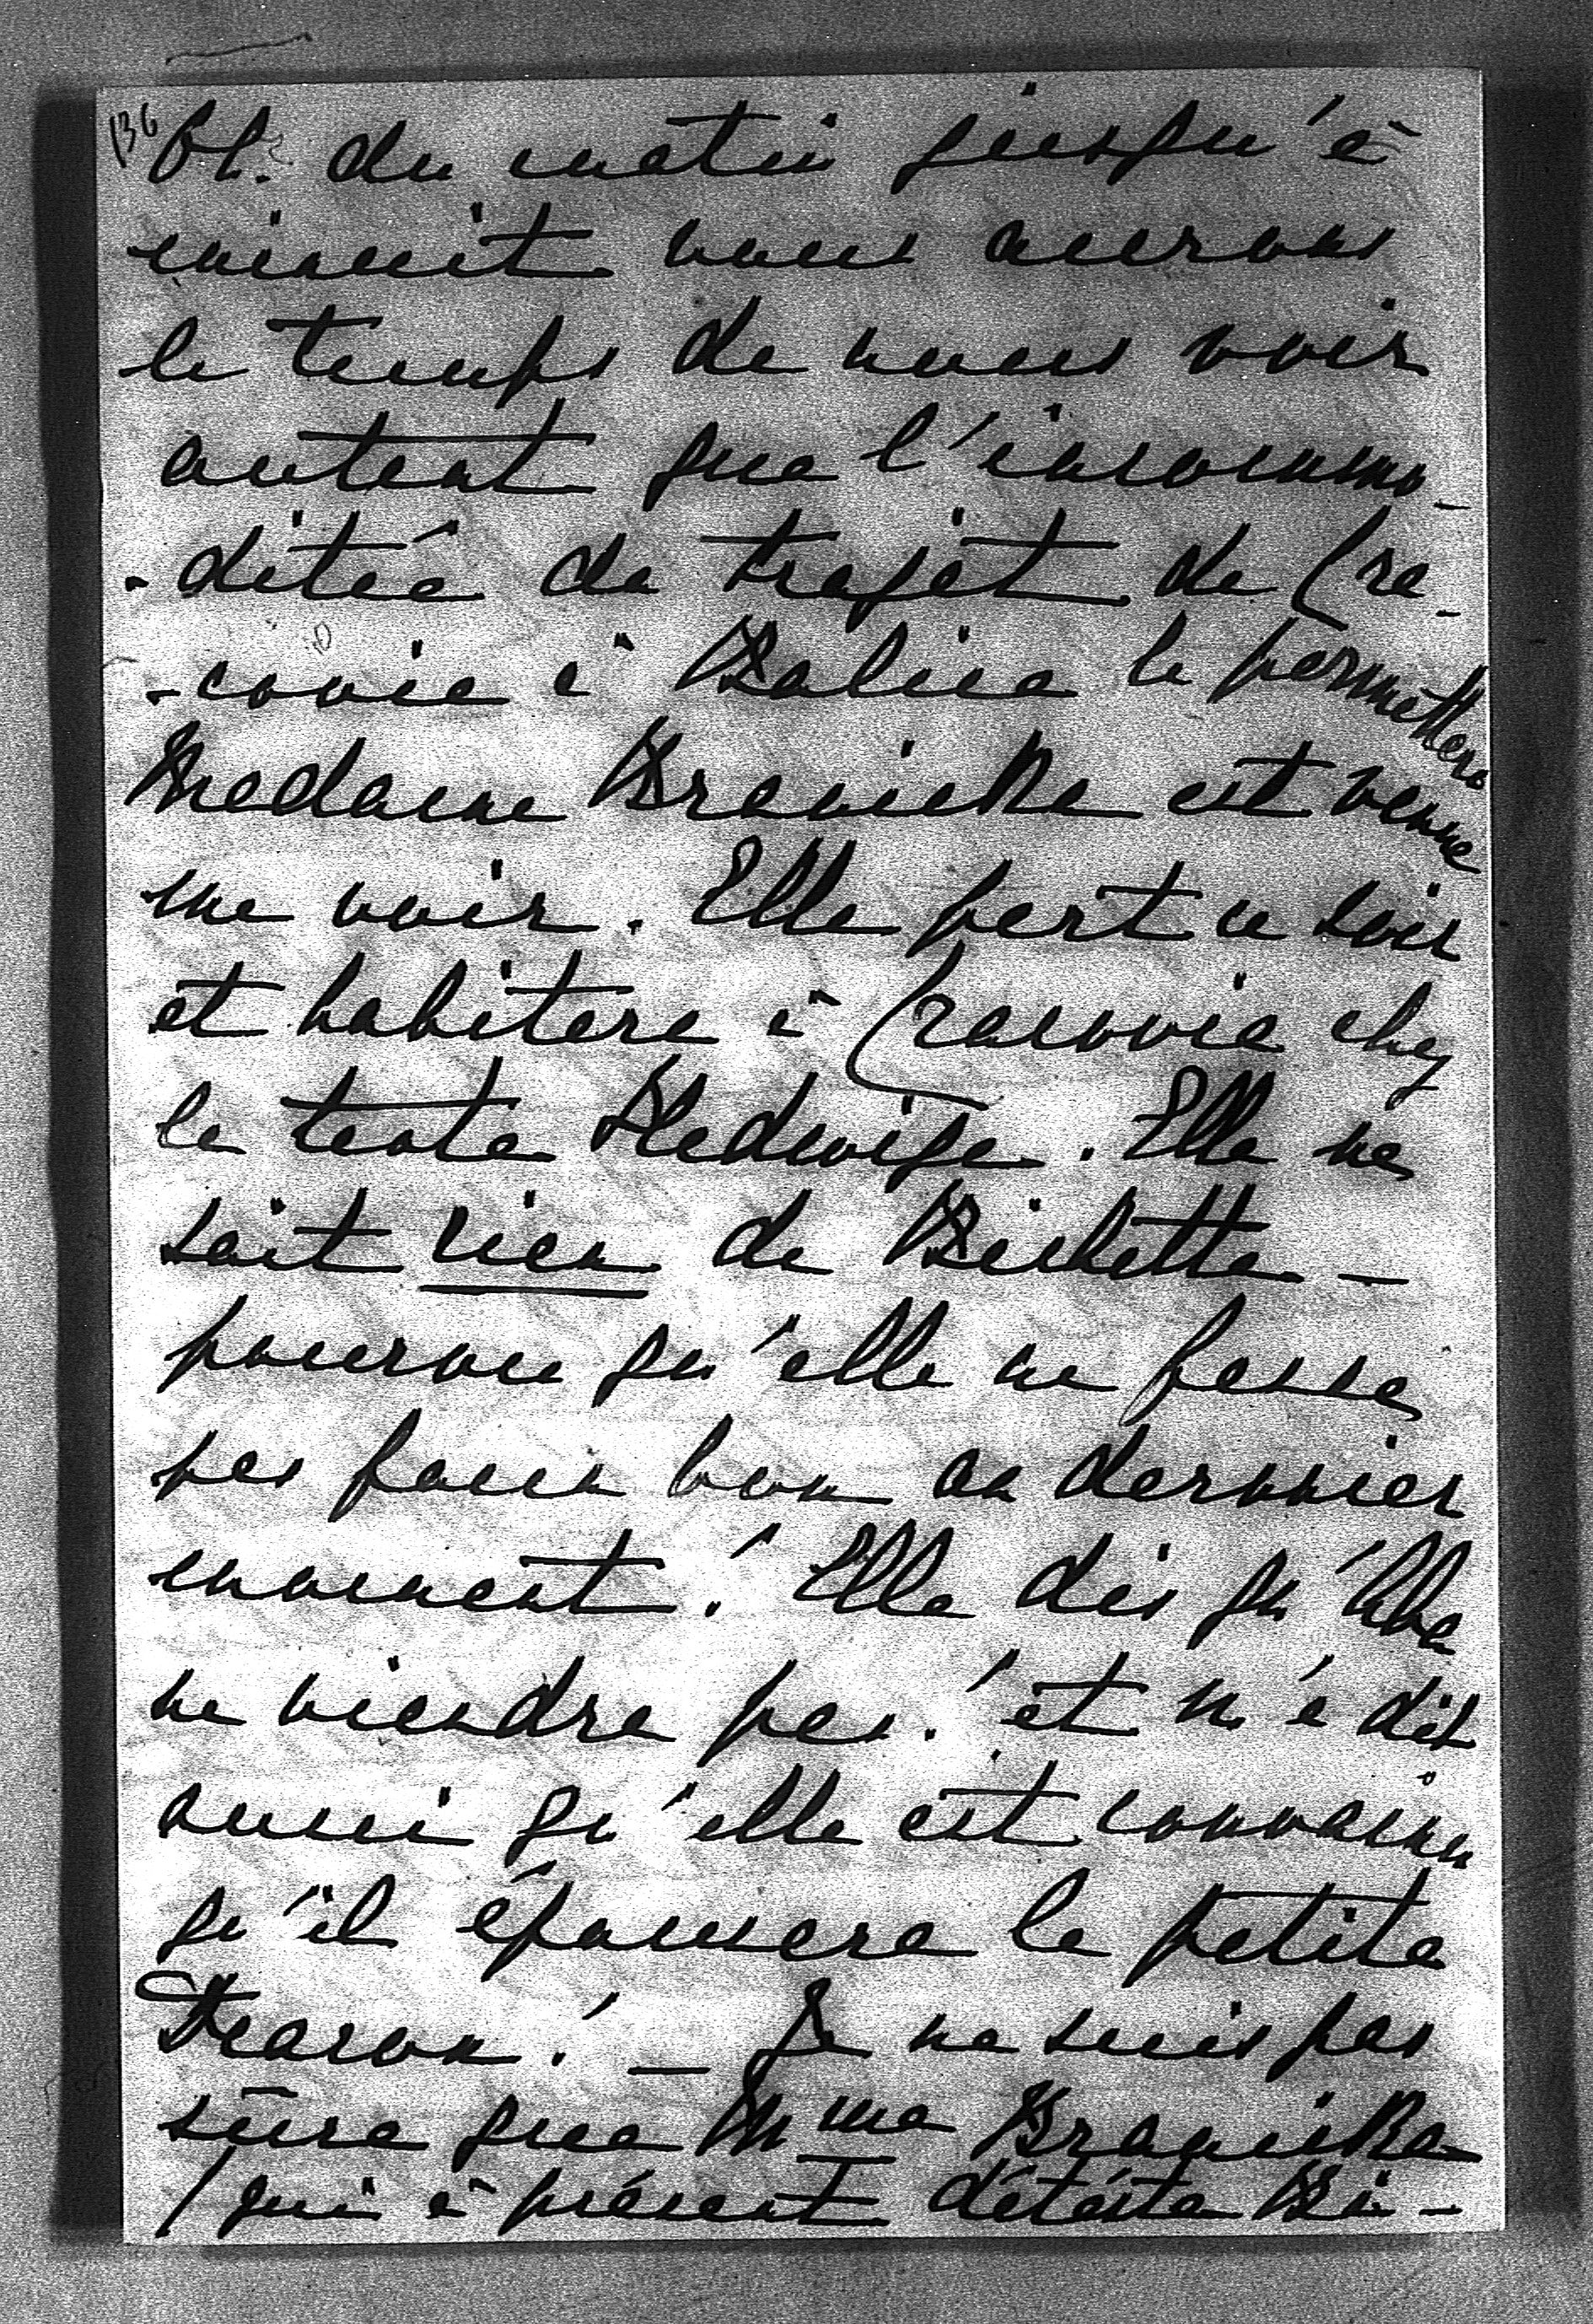 136
6h. du matin jusqu'à
minuit nous aurons
le temps de nous voir
autant que l'incommo-
-dité du trajet de Cra-
-covie à Balice le permettera
Madame Branicka est venue
me voir. Elle part ce soir
et habitera à Cracovie chez
la tante Hedwige. Elle ne
sait rien de Bichette –
pourvu qu'elle ne fasse
pas faux bon au dernier
moment! Elle dis qu'
ne viendra pas! et m'a dit
aussi qu'elle est convaincu
qu'il épousera la petite
! – Je ne suis pas
sûre que Mme Branicka
(qui à présent détéste Bi-